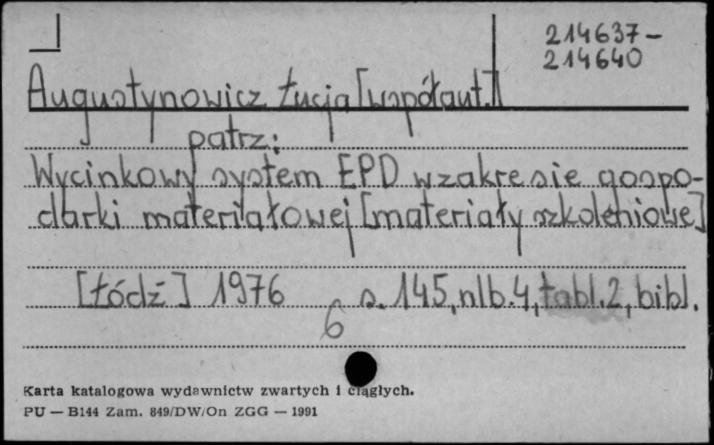 214637-
214640
Augustynowicz Łucja [współaut.]
patrz:
Wycinkowy system EPD w zakresie gospo-
darki materiałowej [materiały szkoleniowe]
[Łódź] 1976 s. 145, nlb. 4, tabl. 2, bibl.
6
Karta katalogowa wydawnictw zwartych i ciągłych.
PU — B144 Zam. 849/DW/On ZGG — 1991